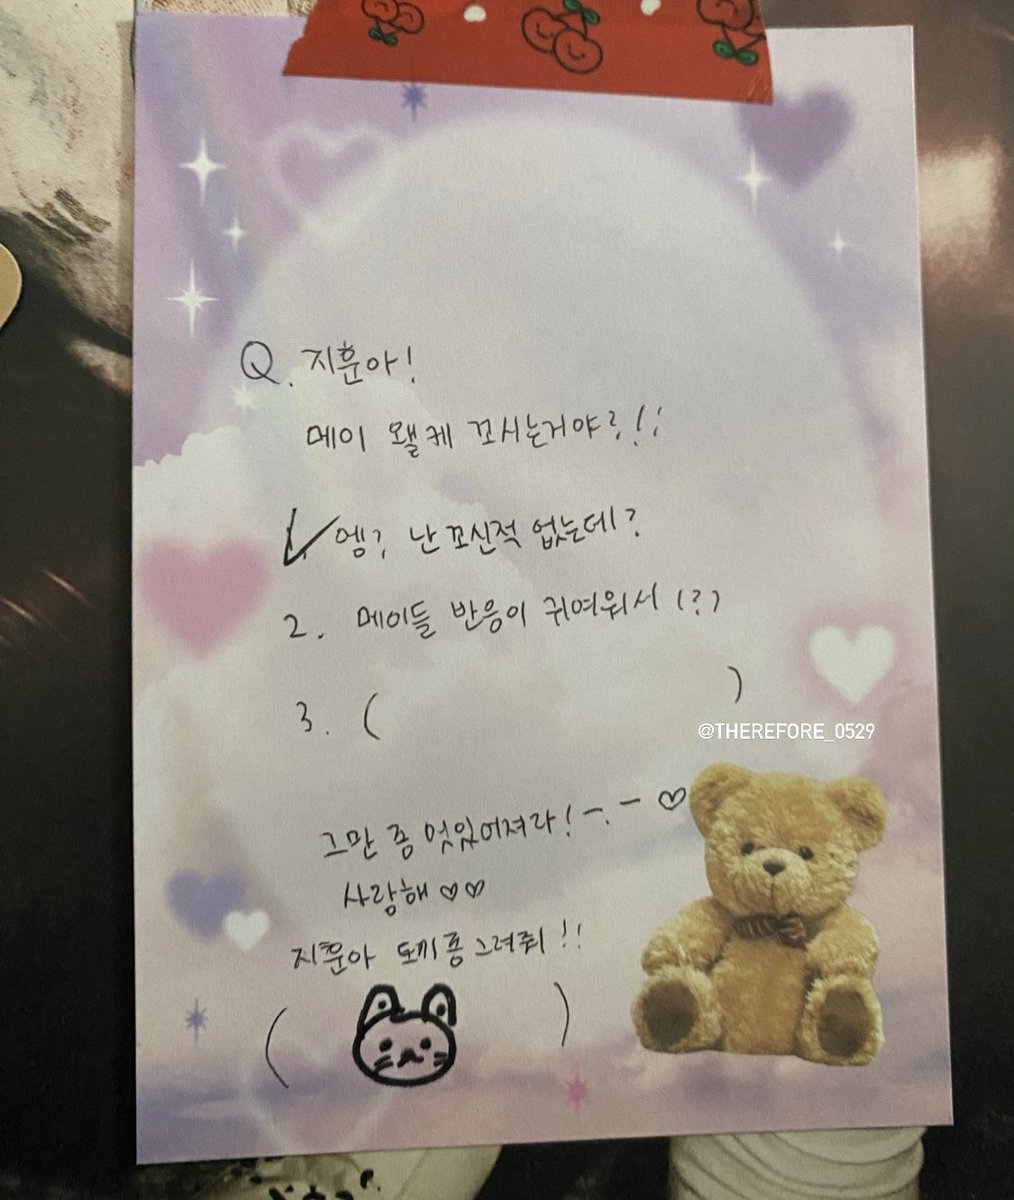 Q. 지훈아!
메이 왤케 꼬시는거야?!!
1. 엥? 난 꼬신적 없는데?
2. 메이들 반응이 귀여워서 (?)
3. ( )
@THEREFORE_0529
그만 좀 멋있어져라! ㅡ.ㅡ ♡
사랑해 ♡♡
지훈아 토끼좀 그려줘!!
( )